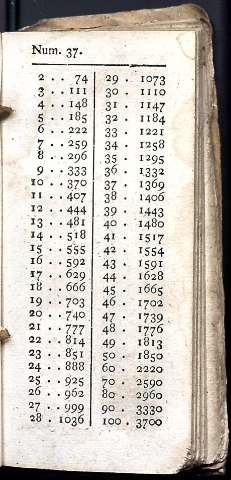 Num. 37.
2 . . 74
3 . . 111
4 . . 148
5 . . 185
6 . . 222
7 . . 259
8 . . 296
9 . . 333
10 . . 370
11 . . 407
12 . . 444
13 . . 481
14 . . 518
15 . . 555
16 . . 592
17 . . 629
18 . . 666
19 . . 703
20 . . 740
21 . . 777
22 . . 814
23 . . 851
24 . . 888
25 . . 925
26 . . 962
27 . . 999
28 . 1036
29 . 1073
30 . 1110
31 . 1147
32 . 1184
33 . 1221
34 . 1258
35 . 1295
36 . 1332
37 . 1369
38 . 1406
39 . 1443
40 . 1480
41 . 1517
42 . 1554
43 . 1591
44 . 1628
45 . 1665
46 . 1702
47 . 1739
48 . 1776
49 . 1813
50 . 1850
60 . 2220
70 . 2590
80 . 2960
90 . 3330
100 . 3700